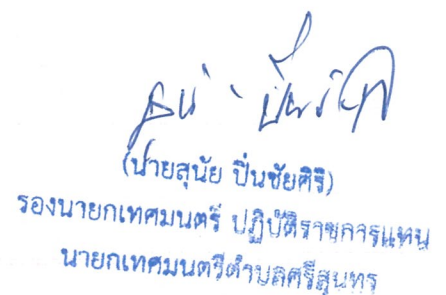 (นายสุนัย ปิ่นชัยศิริ)
รองนายกเทศมนตรี ปฏิบัติราชการแทน
นายกเทศมนตรีตำบลศรีสุนทร